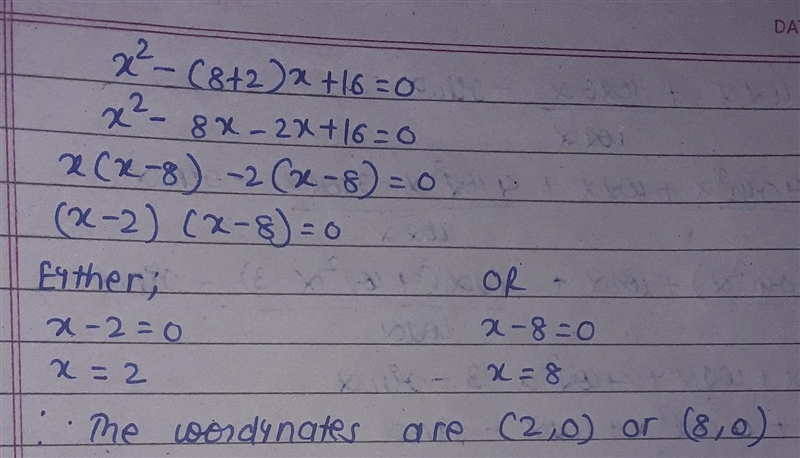 DA
x² - (8+2)x + 16 = 0
x² - 8x - 2x + 16 = 0
x(x-8) -2(x-8) = 0
(x-2) (x-8) = 0
Either; OR
x - 2 = 0 x - 8 = 0
x = 2 x = 8
∴ The coordinates are (2,0) or (8,0)